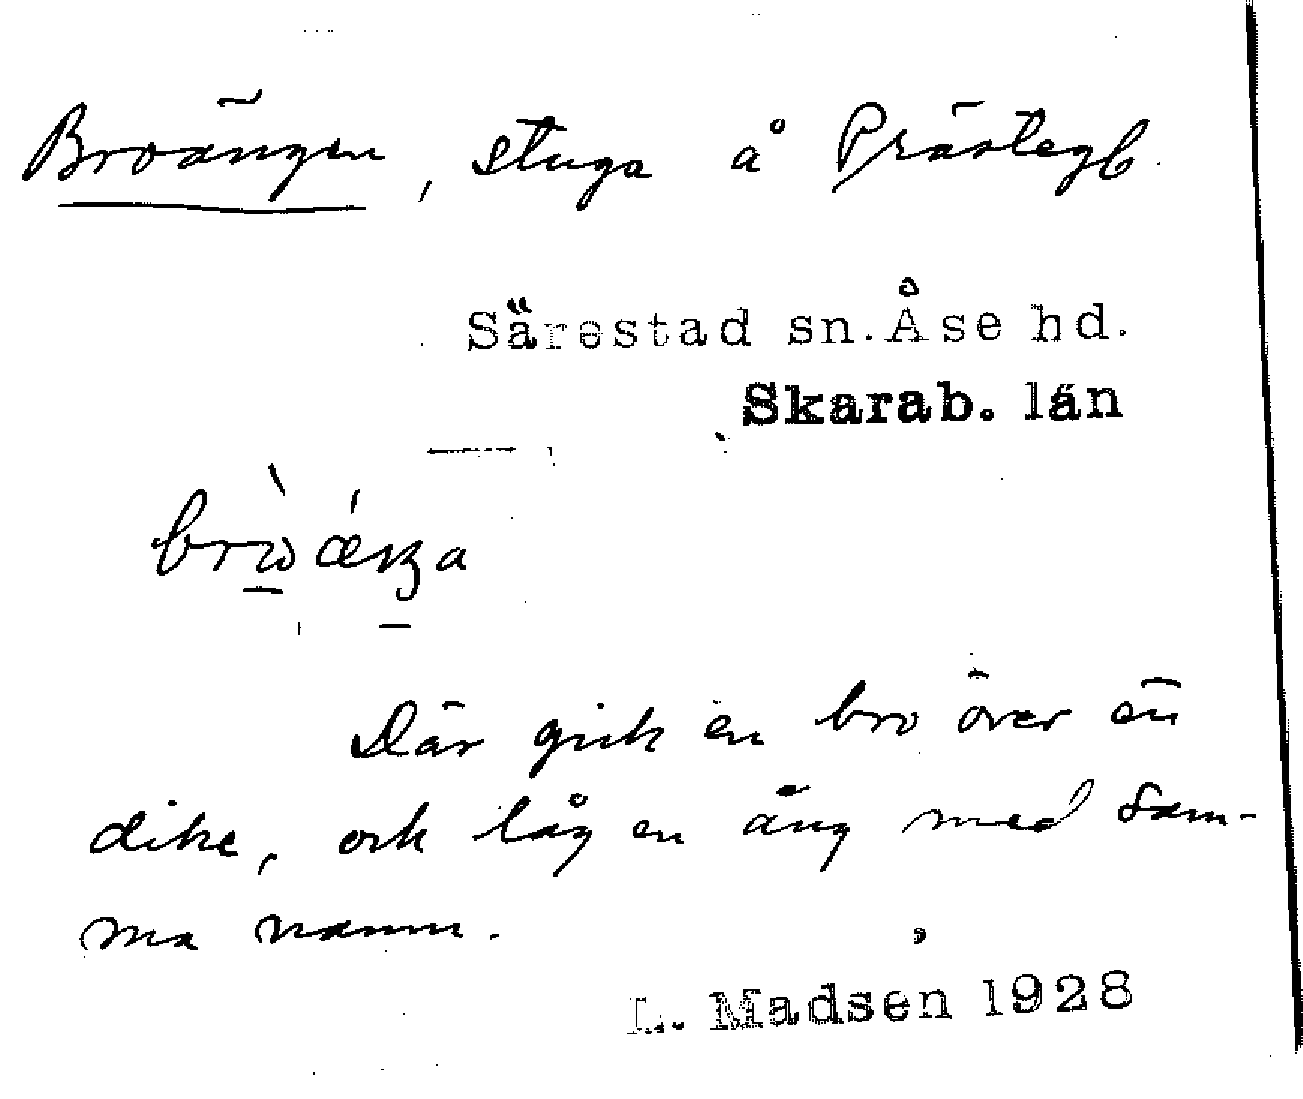 Broängen, stuga å Prästegb.
Särestad sn. Åse hd.
Skarab. län
Där gick en bro över en
dike, och låg en äng med sam-
ma namn.
L. Madsen 1928